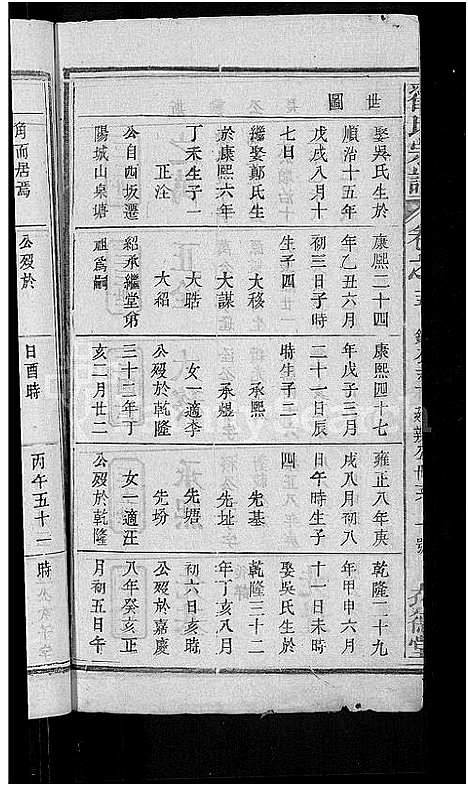 世圖
娶吳氏生於
順治十五年
戊戌八月十
七日
繼娶鄭氏生
於康熙六年
丁未生子一
正注
公自西坂遷
陽城山泉塘
康熙二十四
年乙丑六月
初三日子時
生子四
大移
大謀
大晧
大紹
紹承繼堂弟
祖為嗣
康熙四十七
年戊子三月
二十一日辰
時生子二
承熙
承煜
女一適李
公歿於乾隆
三十二年丁
亥二月廿二
雍正八年庚
戌八月初八
日午時生子
四
先基
先址
先培
先坋
女一適汪
公歿於乾隆
乾隆二十九
年甲申六月
十一日未時
娶吳氏生於
乾隆三十二
年丁亥八月
初六日亥時
公歿於嘉慶
八年癸亥正
月初五日午
角而居焉
公歿於
日酉時
丙午五十二
時